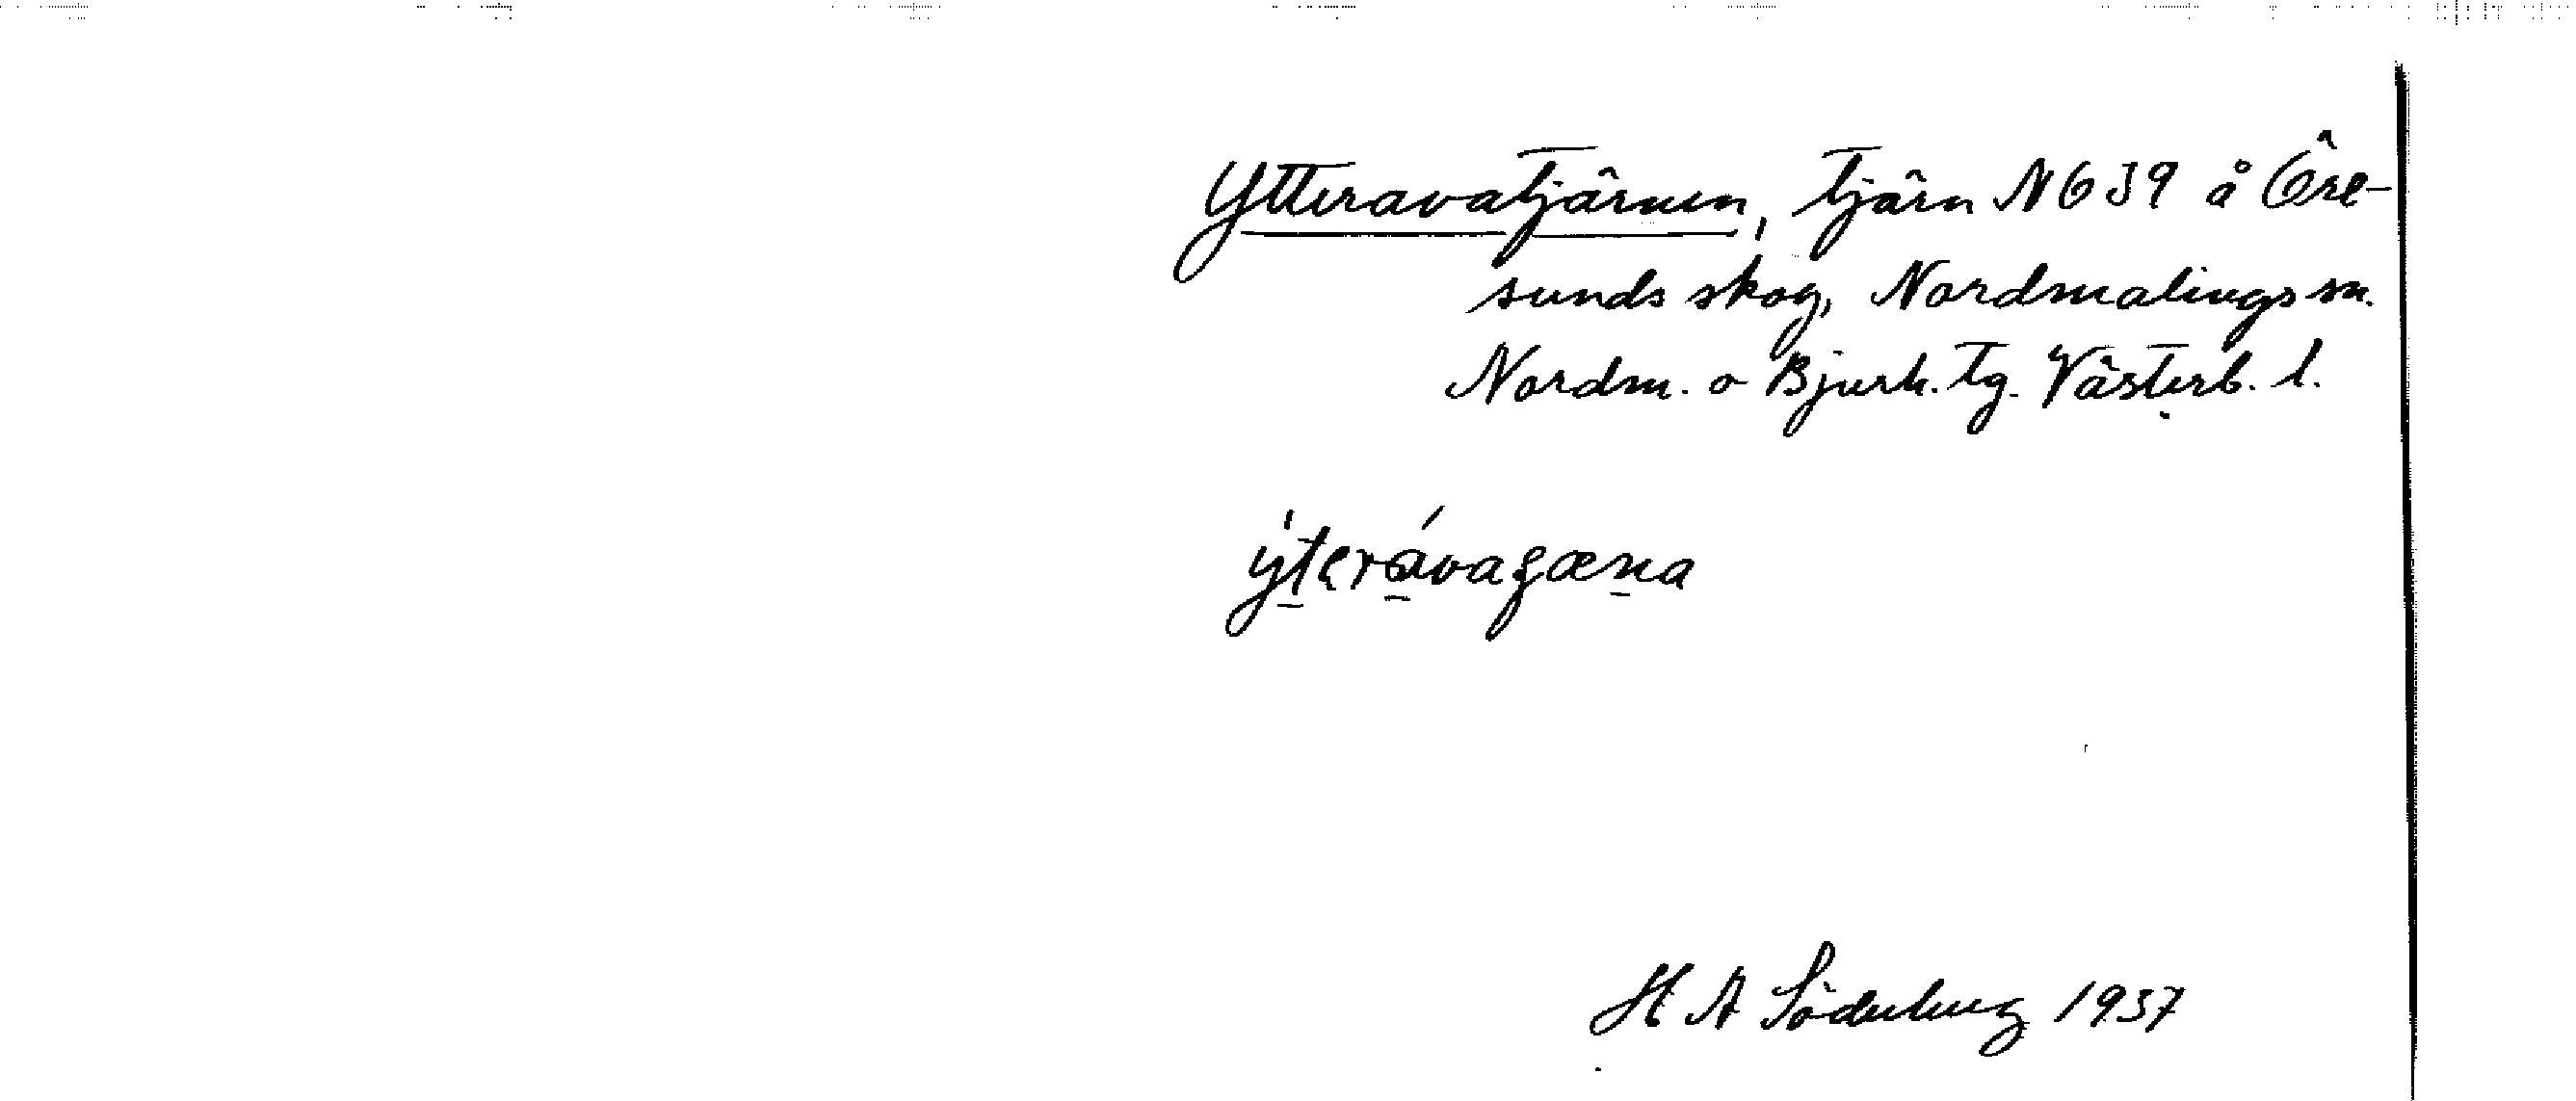 Ytteravatjärnen, tjärn N 639 å Öre-
sunds skog, Nordmalings sn.
Nordm. o Bjurh. tg. Västerb. l.
H A Söderberg 1937